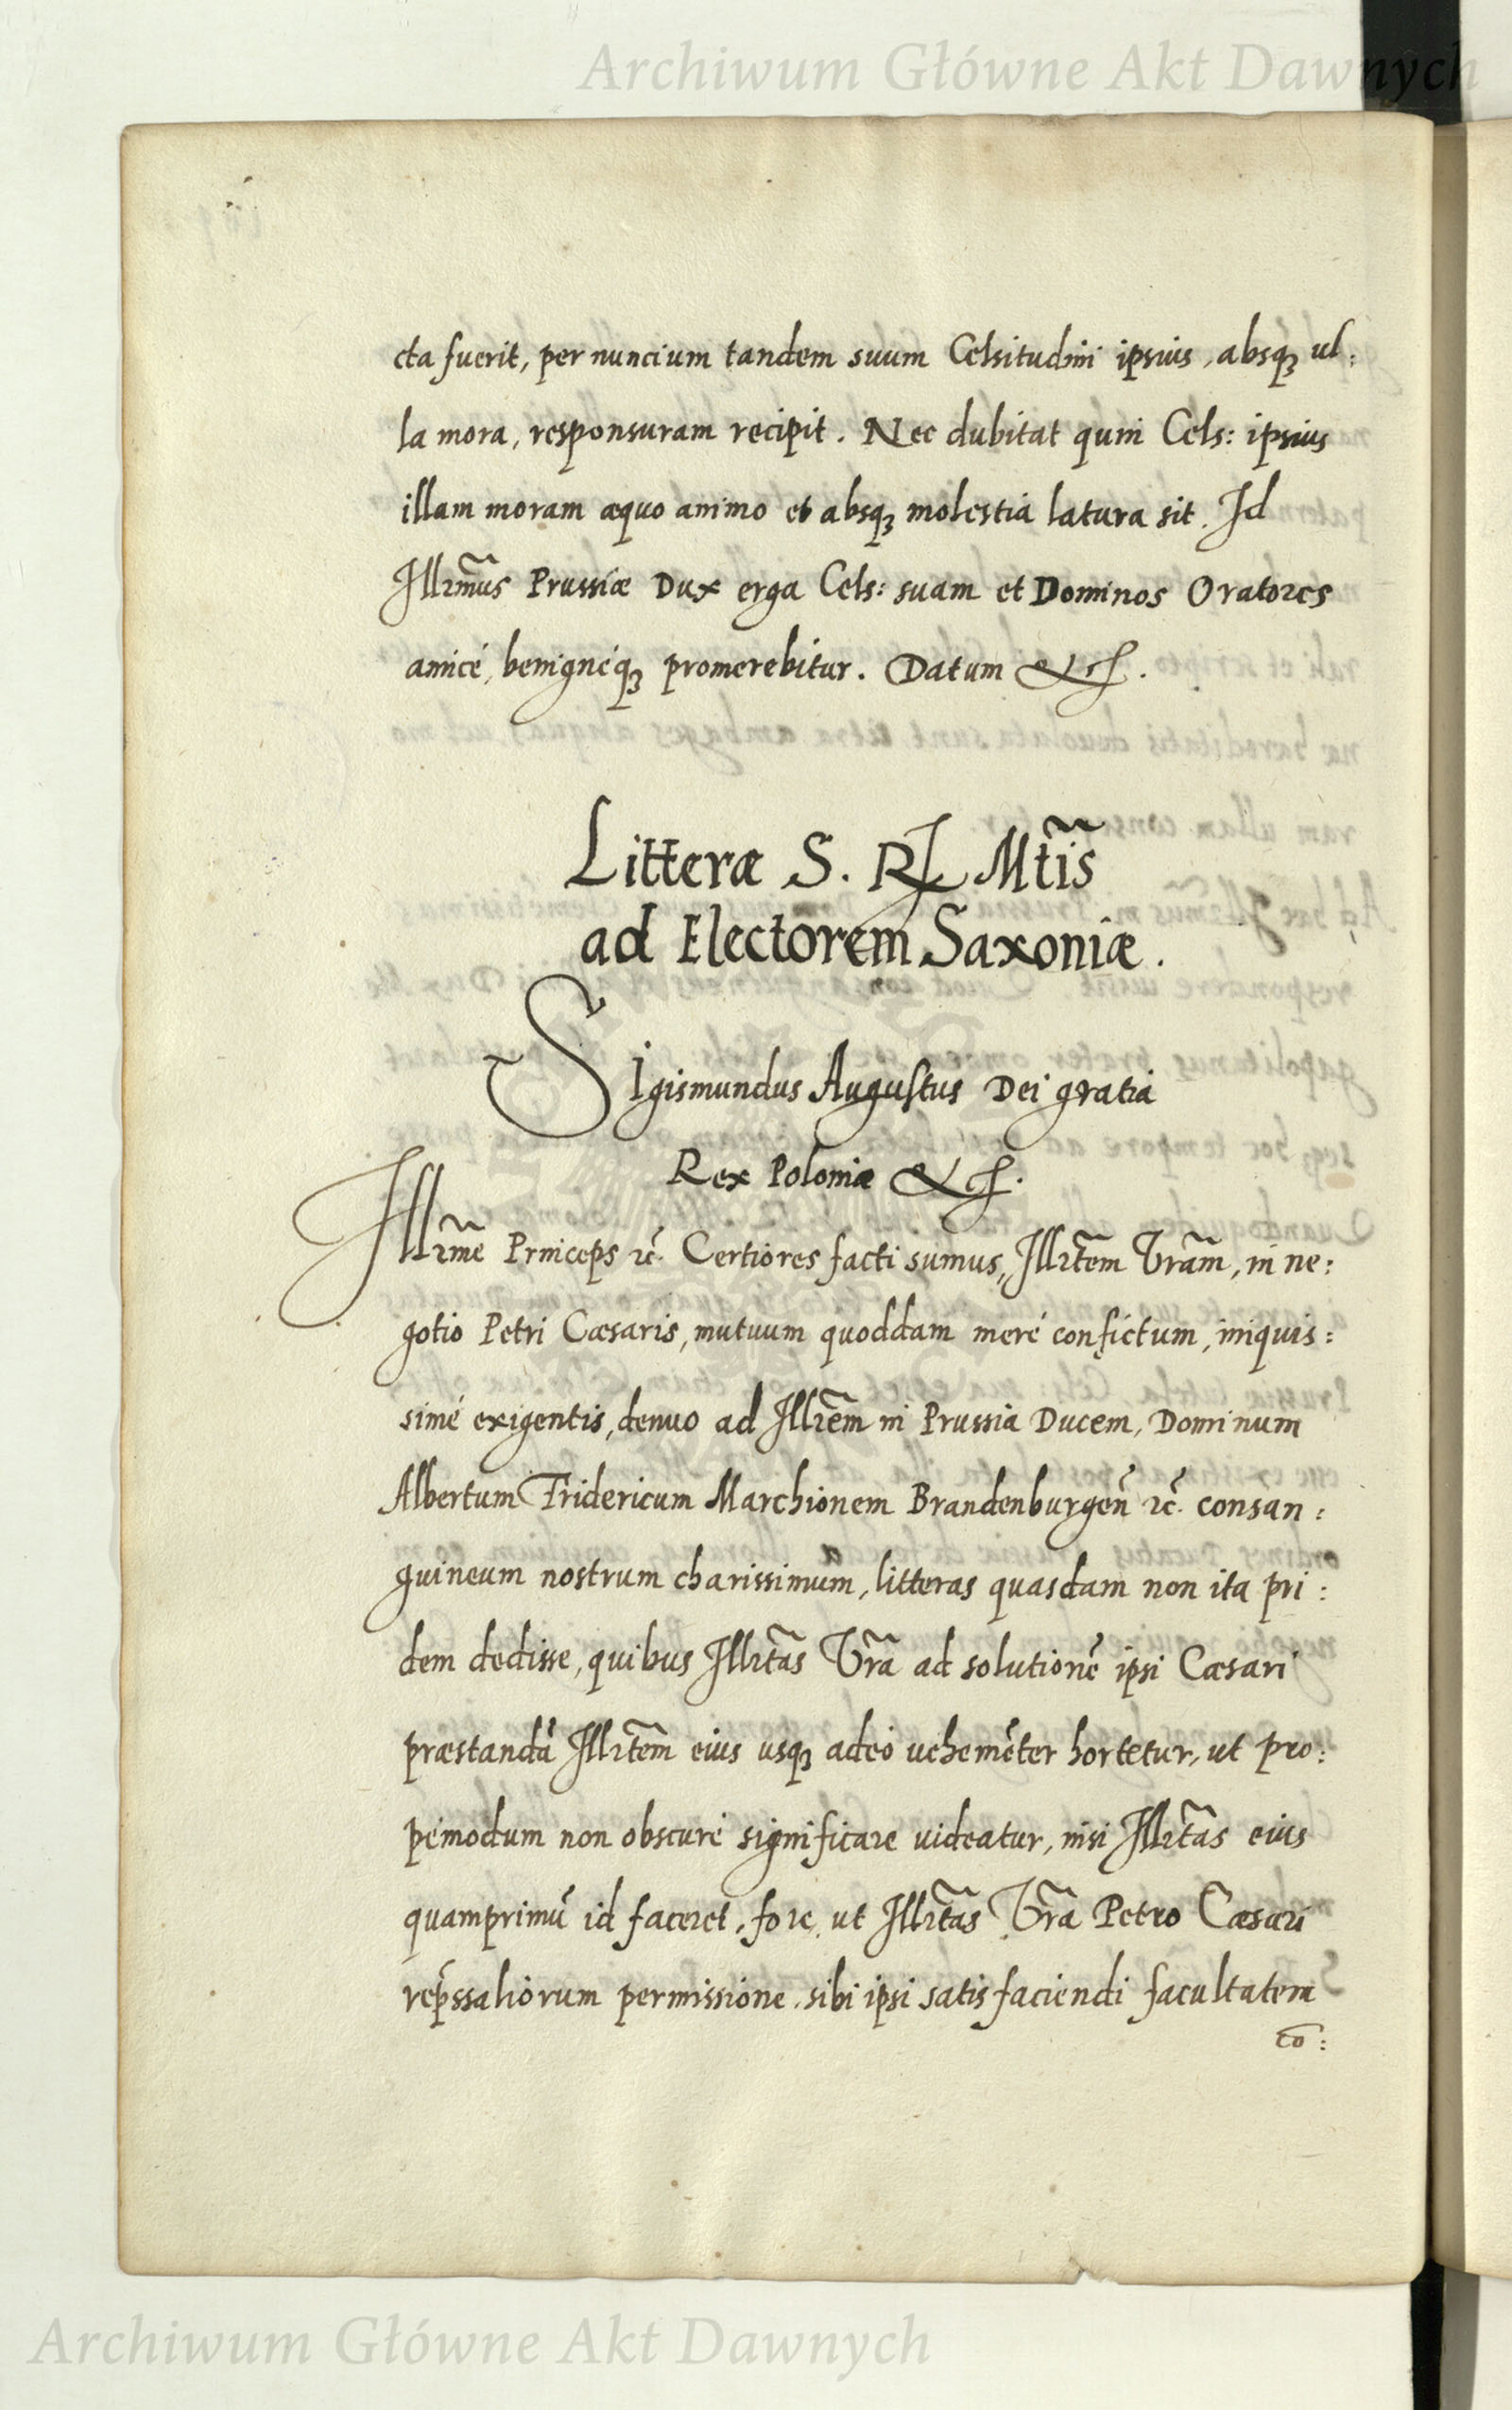 Archiwum Główne Akt Dawnych
cta fuerit, per nuncium tandem suum Celsitudini ipsius, absq́ꝫ ul:
la mora, responsuram recipit. Nec dubitat quin Cels: ipsius
illam moram æquo animo et absqꝫ molestia latura sit. Id
Illr̃mus Prussiæ Dux erga Cels: suam et Dominos Oratores
amicé, benignéqꝫ promerebitur. Datum &c.
Litteræ S. R. Mt̃is
ad Electorem Saxoniæ.
Sigismundus Augustus Dei gratia
Rex Poloniæ &c.
Illr̃me Princeps ꝛc̃. Certiores facti sumus, Illrt̃em Vr̃am, in ne:
gotio Petri Cæsaris, mutuum quoddam meré confictum, iniquis:
simé exigentis, denuo ad Illrẽm in Prussia Ducem, Dominum
Albertum Fridericum Marchionem Brandenburgeñ ꝛc̃. consan:
guineum nostrum charissimum, litteras quasdam non ita pri:
dem dedisse, quibus Illrt̃as Vr̃a ad solutionẽ ipsi Cæsari
præstandã Illrt̃em eius usqꝫ adeò uehemẽter hortetur, ut pro:
pemodum non obscuré significare uideatur, nisi Illrt̃as eius
quamprimũ id faceret, fore, ut Illrt̃as Vr̃a Petro Cæsari
rep̃ssaliorum permissione, sibi ipsi satisfaciendi facultatem
cõ:
Archiwum Główne Akt Dawnych